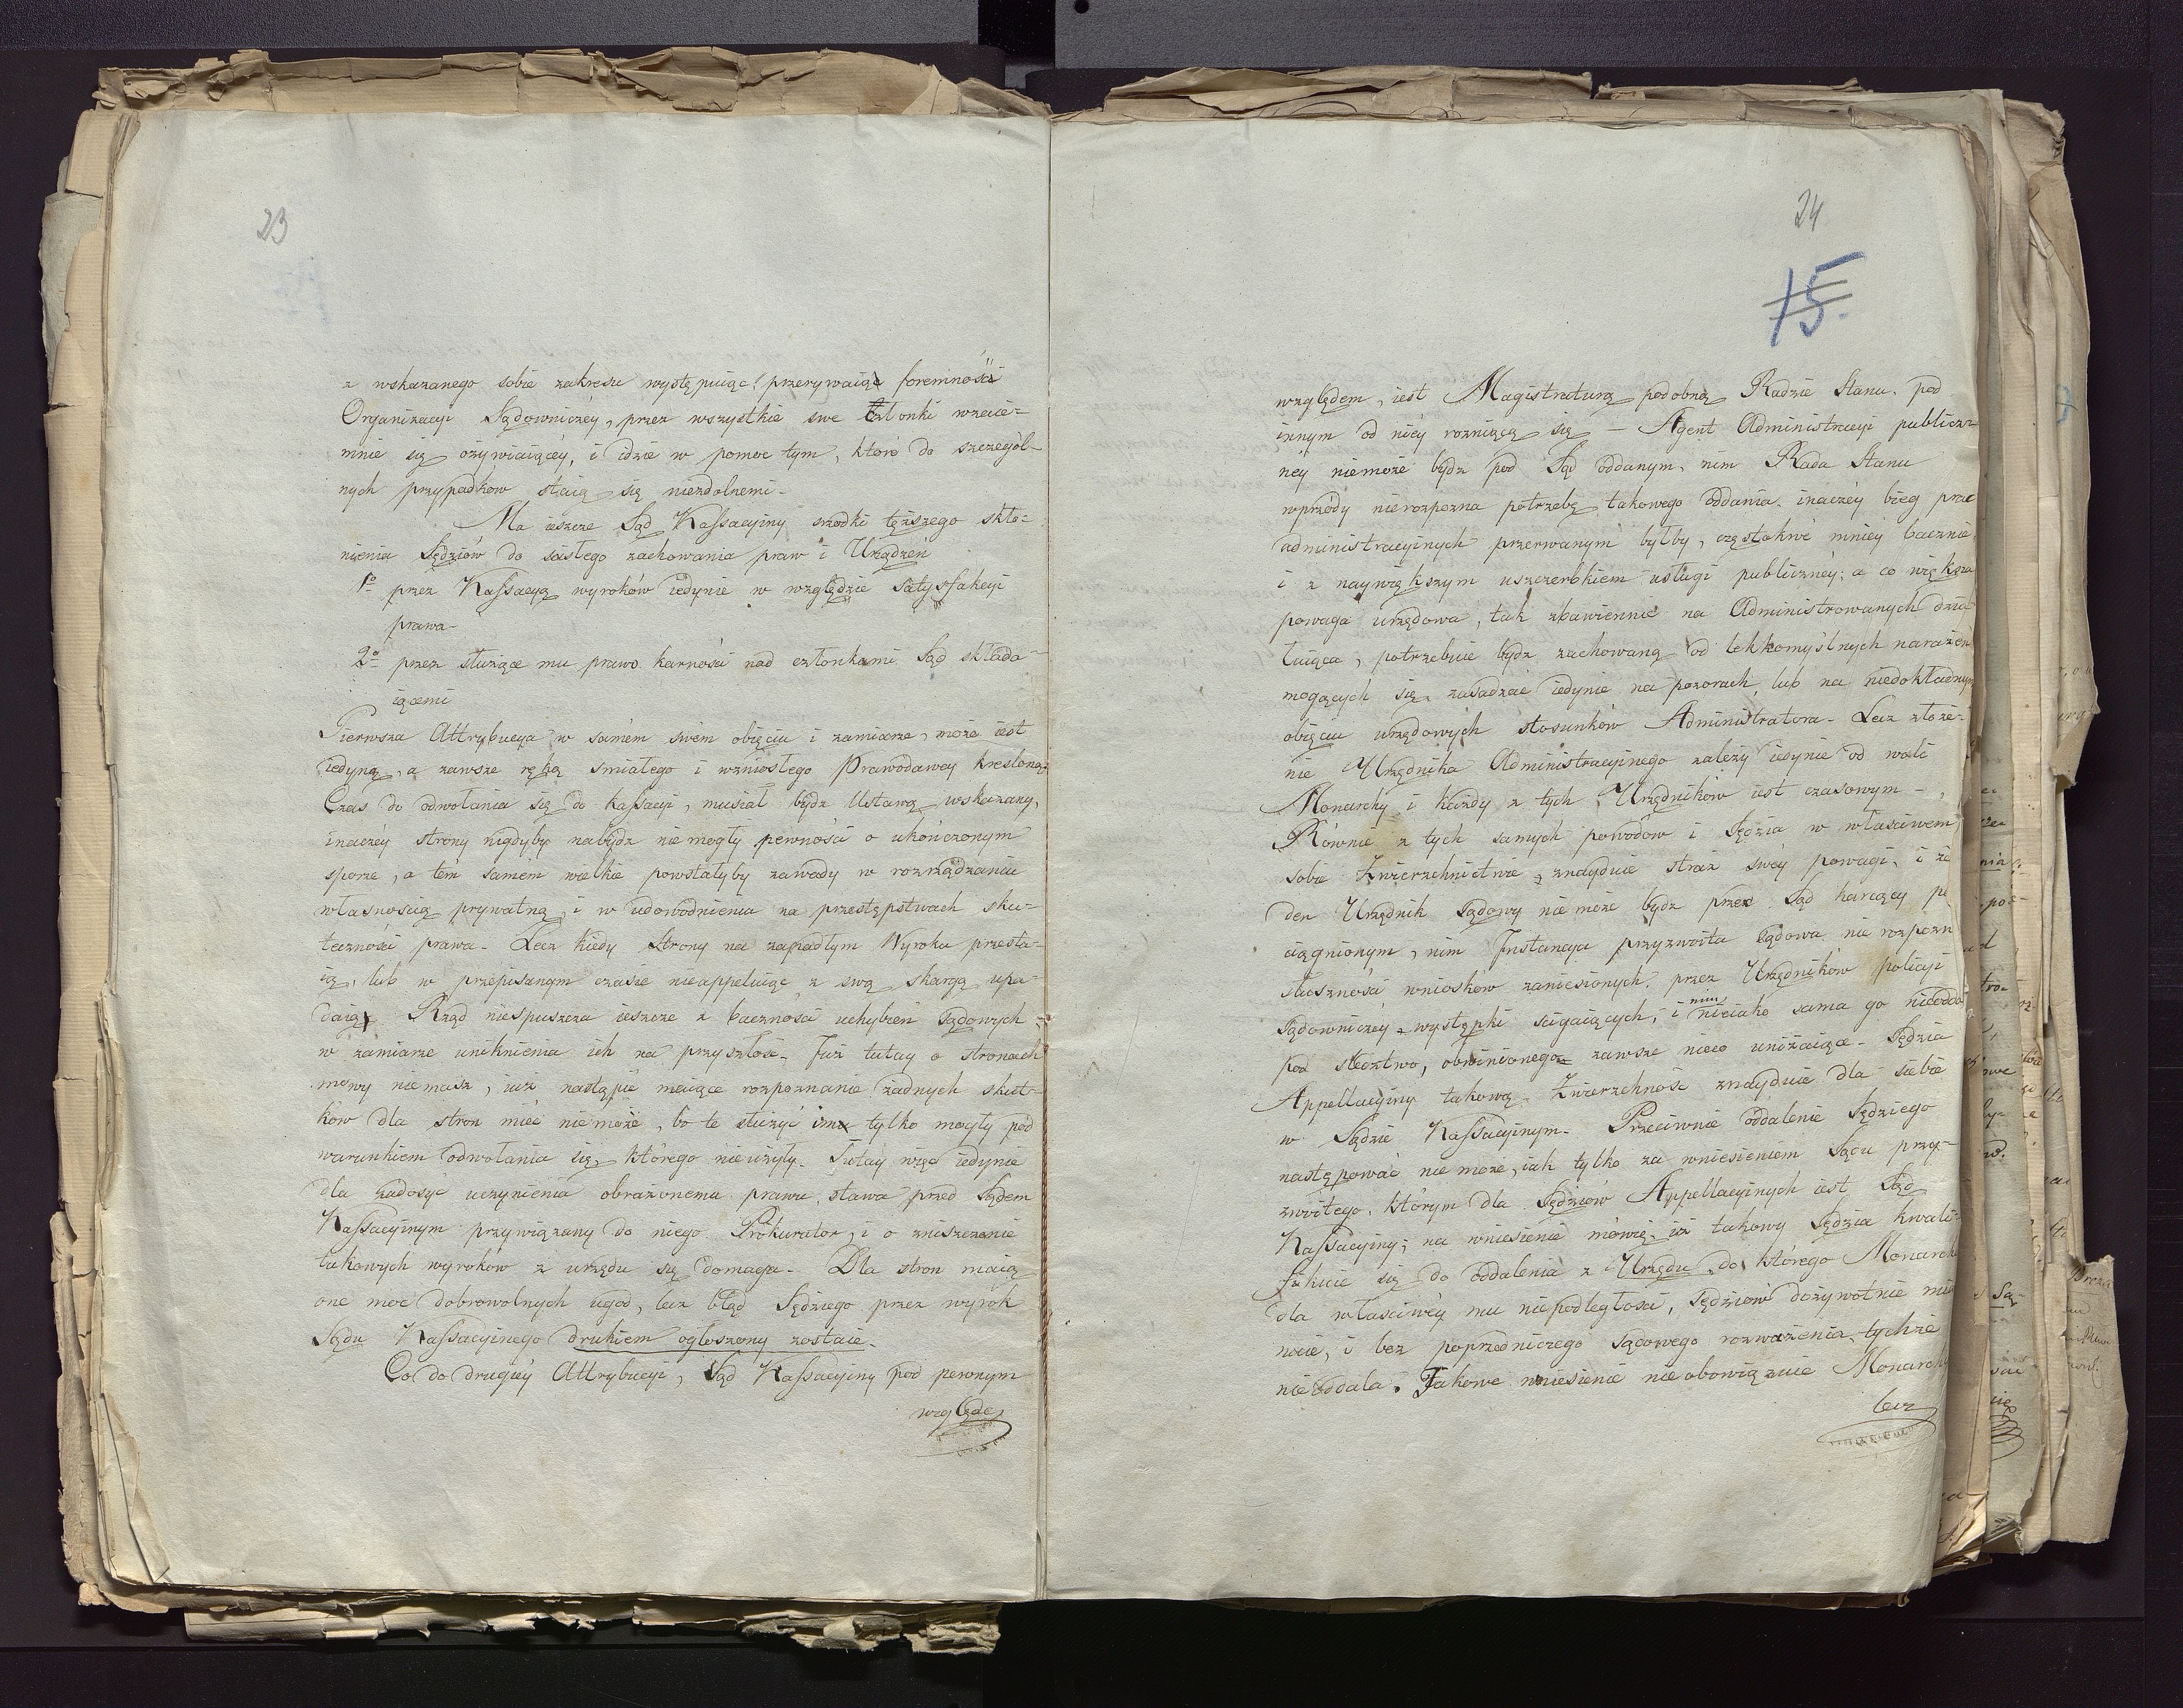 23
z wskazanego sobie zakresu występuiąc, przerywaiąc foremności
Organizacyi Sądowniczéy, przez wszystkie swe Członki wzaie-
mnie się ożywiaiącéy, i idzie w pomoc tym, które do szczegól-
nych przypadków staią się niezdolnemi-
Ma ieszcze Sąd Kassacyiny srodki tęższego skło-
nienia Sędziów do scisłego zachowania praw i Urządzeń
1o przez Kassacyą wyroków iedynie w względzie satysfakcyi
prawa-
2o przez służące mu prawo karności nad członkami Sąd składa-
iącemi
Pierwsza Attrybucya w samém swém obięciu i zamiarze, może iest
iedyną, a zawsze ręką smiałego i wzniosłego Prawodawcy kreśloną.
Czas do odwołania się do kassacyi, musiał bydz Ustawą wskazany,
inaczéy strony nigdyby nabydz nie mogły pewności o ukończonym
sporze, a tém samém wielkie powstałyby zawady w rozrządzaniu
własnością prywatną, i w udowodnieniu na przestępstwach sku-
teczności prawa- Lecz kiedy strony na zapadłym Wyroku przesta-
ią, lub w przepisanym czasie nieappeluiąc z swą skargą upa-
daią, Rząd niespuszcza ieszcze z baczności uchybień sądowych
w zamiarze uniknienia ich na przyszłość- Już tutay o stronach
mowy niemasz, iuż nastąpić maiące rozpoznanie żadnych skut-
ków dla stron mieć niemoże, bo te służyć im tylko mogły pod
warunkiem odwołania się, którego nieużyły- Tutay więc iedynie
dla zadosyć uczynienia obrażonemu prawu, stawa przed Sądem
Kassacyinym przywiązany do niego Prokurator, i o zniszczenie
takowych wyroków z urzędu się domaga- Dla stron maią
one moc dobrowolnych ugod, lecz błąd Sędziego przez wyrok
Sądu Kassacyinego drukiem ogłoszony zostaie-
Co do drugiéy Attrybucyi, Sąd Kassacyiny pod pewnym
względe
24
15.
względem, iest Magistraturą podobną Radzie Stanu, pod
innym od niéy rozniącą się - Agent Administracyi publicz-
néy niemoże bydz pod Sąd oddanym, nim Rada Stanu
wprzódy nierozpozna potrzebę takowego oddania, inaczéy bieg prac
administracyinych przerwanym byłby, częstokroć mniéy bacznie,
i z naywiększym uszczerbkiem usługi publicznéy; a co większa
powaga urzędowa, tak zbawiennie na Administrowanych dzia-
łaiąca, potrzebuie bydz zachowaną od lekkomyślnych narażeń
mogących się zasadzać iedynie na pozorach, lub na niedokładnym
obięciu urzędowych stosunków Administratora- Lecz złoże-
nie Urzędnika Administracyinego zależy iedynie od woli
Monarchy i każdy z tych Urzędników iest czasowym -
Równie z tych samych powodów i Sędzia w własciwém
sobie Zwierzchnictwie znayduie straż swéy powagi, i ża
den Urzędnik Sądowy niemoże bydz przed Sąd karzący po
ciągnionym, nim Instancya przyzwoita Sądowa nie rozpozn
słuszności wniosków zaniesionych, przez Urzędników policyi
Sądowniczéy występki scigaiących, i nim nieiako sama go nieodda
pod sledztwo, obwinionego zawsze nieco uniżaiące- Sędzia
Appellacyiny takową Zwierzchność znayduie dla siebie
w Sądzie Kassacyinym- Przeciwnie oddalenie Sędziego
następować nie może, iak tylko za wniesieniem Sądu przy-
zwoitego, którym dla Sędziów Appellacyinych iest Sąd
Kassacyiny; na wniesienie mówię, iż takowy Sędzia kwali-
fikuie się do oddalenia z Urzędu, do którego Monarch
dla własciwéy mu niepodległości, Sędziów dożywotnie mia
nuie, i bez poprzedniczego sądowego rozważenia, tychże
nieoddala. Takowe wniesienie nieobowiązuie Monarch
lecz